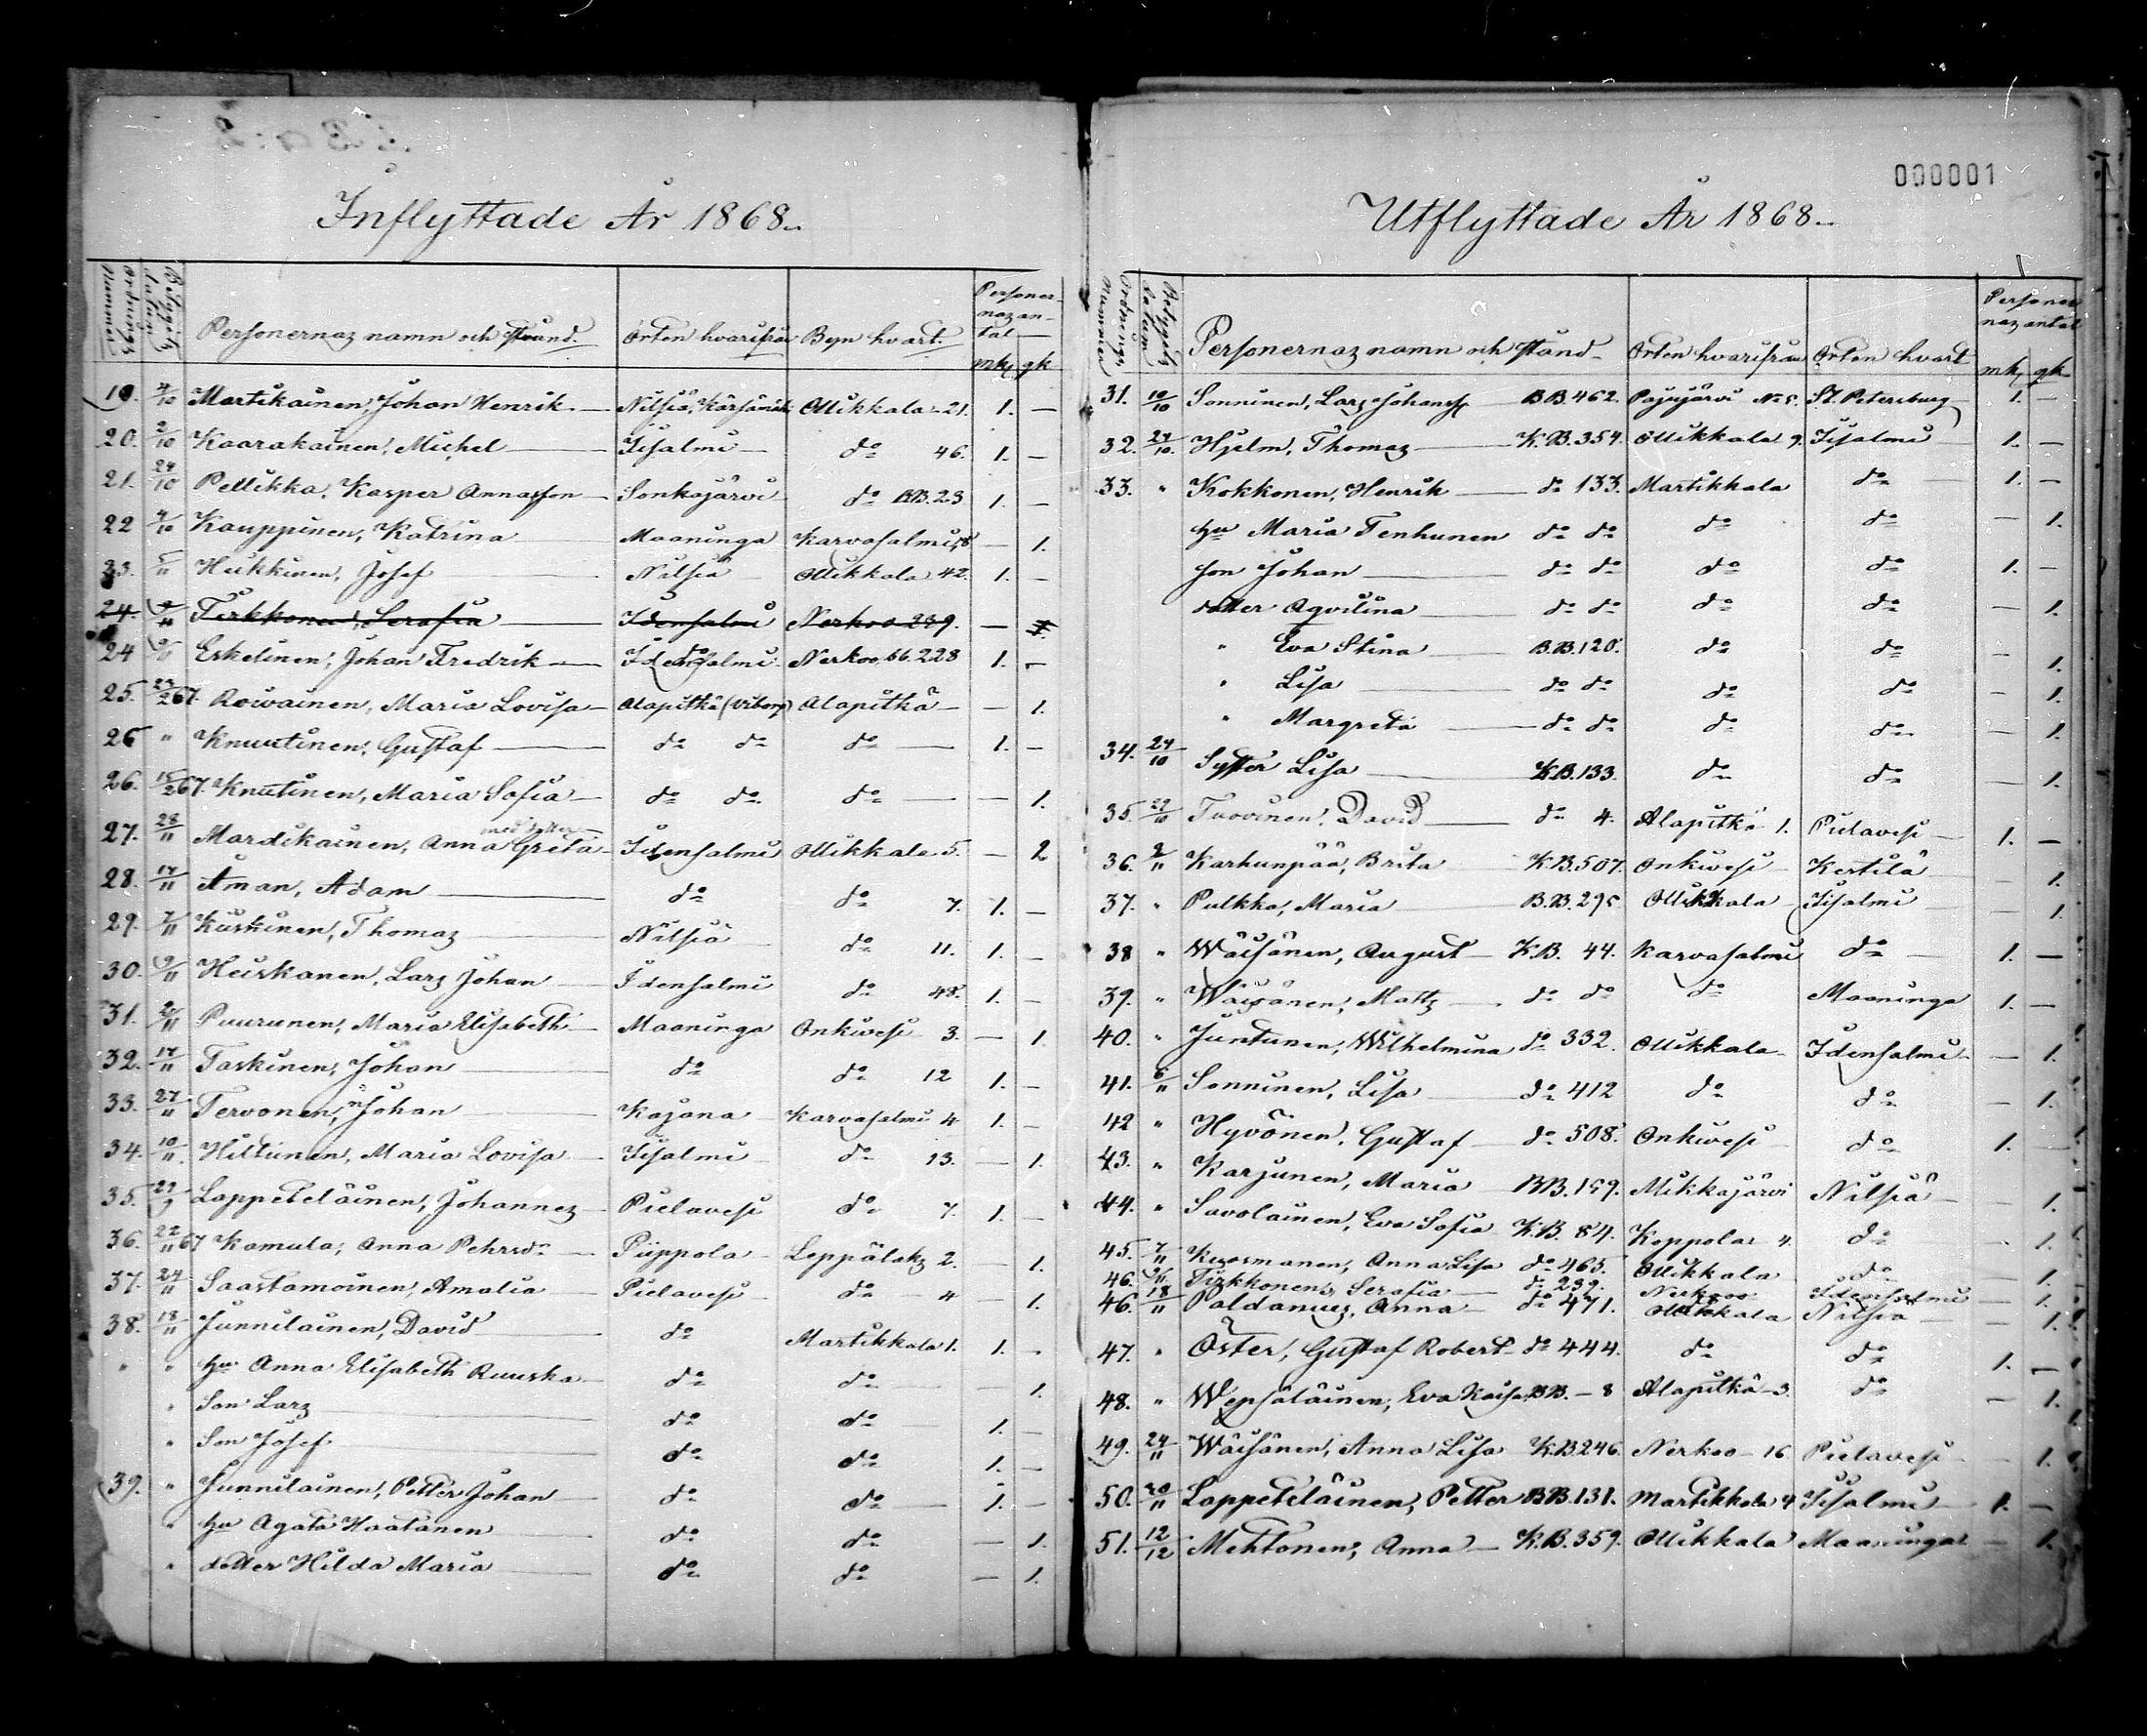 Inflyttade År 1868.
Ordnings Nummer Betygets datum Personernas namn och stånd. Orten hvarifrån Byn hvart. Personernas antal mk. qk.
19. 4/10 Martikainen, Johan Henrik — Nilsiä, Ollikkala 21. 1. —
20. 2/10 Kaarakainen, Michel — Iisalmi — do 46. 1. —
21. 24/10 Pellikka, Kasper Annasson — Sonkajärvi do BB. 23 1. —
22 4/10 Kauppinen, Katrina Maaninga Karvasalmi, 8 — 1.
23. 5/11 Heikkinen, Josef — Nilsiä Ollikkala 42. 1. —
24. Tirkkonen, Serafia — Idensalmi Nerkoo 239. — 1.
24 Eskelinen, Johan Fredrik — Idensalmi Nerkoo, bb. 228 1. —
25. 23/2 67. Roivainen, Maria Lovisa — Alapitkä (Viborg) Alapitkä — — 1.
26 " Knuutinen, Gustaf — do do do — 1. —
26. 15/2 67. Knutinen, Maria Sofia — do do do — — 1.
27. 28/11 Mardikainen, Anna Greta med dotter — Idensalmi Ollikkala 5. — 2
28. 17/11 Åman, Adam — do do 7. 1. —
29. 7/11 Kuskinen, Thomas Nilsiä do 11. 1. —
30. 9/11 Heiskanen, Lars Johan — Idensalmi do 48. 1. —
31. Puurunen, Maria Elisabeth — Maaninga Onkivesi 3. — 1.
32. 17/11 Taskinen, Johan — do do 12 1. —
33. 27/11 Tervonen, Johan — Kajana Karvasalmi 4 1. —
34. 10/11 Hiltunen, Maria Lovisa — Iisalmi do 13. — 1.
35. 29/9 Lappeteläinen, Johannes — Pielavesi do 7. 1. —
36. 22/11 67 Kamula, Anna Pehrsdr — Piippola — Leppälaks 2. — 1.
37. 24/11 Saastamoinen, Amalia — Pielavesi do 4 — 1.
38. 18/11 Junnilainen, David — do Martikkala 1. 1. —
" " hu Anna Elisabeth Ruuska — do do — — 1.
" Son Lars — do do — 1. —
" Son Josef — do do 1. —
39. " Junnilainen, Petter Johan — do do — 1. —
" hu Agata Haatanen — do do — 1.
" dotter Hilda Maria — do do — 1.
000001
Utflyttade År 1868.
1
Ordnings Nummer Betygets datum Personernas namn och stånd Orten hvarifrån Orten hvart Personernas antal mk. qk.
31. 10/10 Sonninen, Lars Johanss. BB. 462. Pajujärvi No 5. St. Petersburg 1. —
32. 24/10. Hjelm, Thomas — K.B. 354. Ollikkala 9. Iisalmi — 1. —
33. " Kokkonen, Henrik — do 133. Martikkala do — 1. —
hu Maria Tenhunen do do do do — 1.
son Johan — do do do do 1. —
dotter Agvilina — do do do do — 1.
" Eva Stina — B.B. 120. do do — 1.
" Lisa — do do do do — 1.
" Margreta — do do do do — 1.
34. 24/10 Syster Lisa — K.B. 133. do do — 1.
35. 29/10 Tuovinen, David — do 4. Alapitkä 1. Pielavesi — 1. —
36. 2/11 Karhunpää, Brita — K.B. 507. Onkivesi Kestilä — 1.
37. " Pulkka, Maria — B.B. 295 Ollikkala Iisalmi — 1.
38 " Wäisänen, August — K.B. 44. Karvasalmi do — 1. —
39. " Wäisänen, Matts — do do do Maaninga 1. —
40. " Juntunen, Wilhelmina do 332. Ollikkala Idensalmi — 1.
41. 6/11 Sonninen, Lisa — do 412 do do — 1.
42 " Hyvönen, Gustaf — do 508. Onkivesi do 1. —
43. " Karjunen, Maria — BB. 159. Mikkajärvi Nilsiä — 1.
44. " Savolainen, Eva Sofia K.B. 84. Koppola 4. do — 1.
45. 7/11 Kuosmanen, Anna Lisa do 465. Ollikkala do — 1.
46. Tirkkonen, Serafia — do 239. Nerkoo Idensalmi — 1.
46. 18/11 Paldanius, Anna — do 471. Ollikkala Nilsiä — 1.
47. " Öster, Gustaf Robert do 444. do do 1. —
48. " Wepsäläinen, Eva Kaisa BB. — 8 Alapitkä 3. do — 1.
49. 24/11 Wäisänen, Anna Lisa K.B. 246. Nerkoo — 16 Pielavesi — 1.
50. 20/11 Lappeteläinen, Petter BB. 131. Martikkala 4 Iisalmi 1. —
51. 12/12 Mehtonen, Anna — K.B. 359. Ollikkala Maaninga — 1.